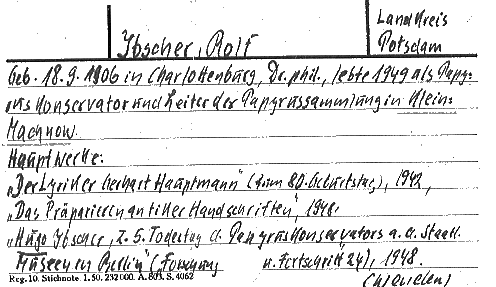 Landkreis
Ibscher, Rolf
Potsdam
Geb. 18.9.1906 in Charlottenburg, Dr. phil., lebte 1949 als Papy-
ruskonservator und Leiter der Papyrussammlung in Klein-
Machnow.
Hauptwerke:
"Der Lyriker Gerhart Hauptmann" (zum 80. Geburtstag), 1942,
"Das Präparieren antiker Handschriften", 1948.
"Hugo Ibscher, z. 5. Todestag d. Papyruskonservators a. d. Staatl.
Museen in Berlin" (Forschung u. Fortschritt 24), 1948.
Reg. 10. Stichnote. 1. 50. 232000. A. 803. S. 4062